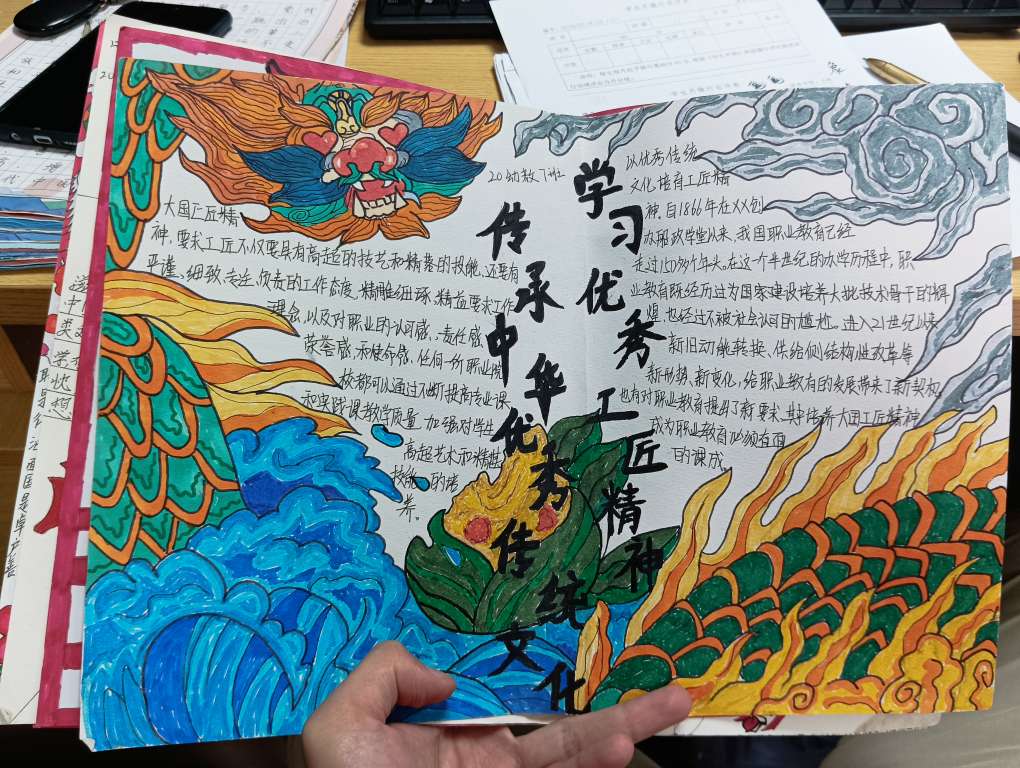 20幼教7班
传承中华优秀传统文化
学习优秀工匠精神
大国工匠精
神，要求工匠不仅要具有高超的技艺和精湛的技能，还要有
严谨、细致、专注、负责的工作态度，精雕细琢、精益要求工作
理念，以及对职业的认可感、责任感
荣誉感、承使命感，任何一所职业院
校都可以通过不断提高专业课
和实践课教学质量，加强对学生
高超艺术而精湛
技能的培
养。
以优秀传统
文化培育工匠精
神，自1866年在XX创
办船政学堂以来，我国职业教育已经
走过150多个年头。在这个半世纪的办学历程中，职
业教育既经历过为国家建设培养大批技术骨干的辉
煌，也经历过不被社会认可的尴尬。进入21世纪以来
新旧动能转换、供给侧结构性改革等
新形势、新变化，给职业教育的发展带来了新契机
也有对职业教育提出了新要求，其中培养大国工匠精神
成为职业教育必须直面
的课成。